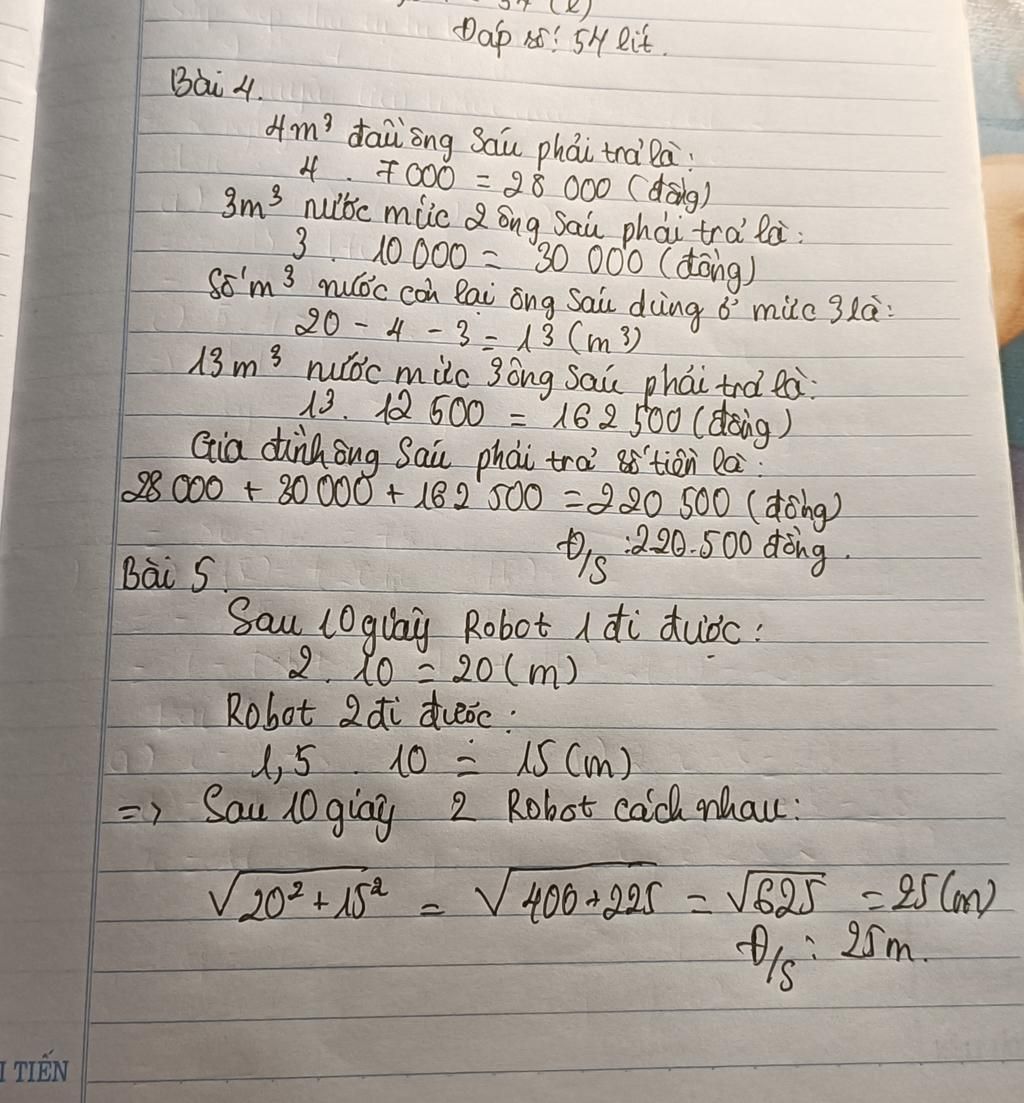 54 (l)
Đáp số: 54 lít.
Bài 4.
4m³ đầu ông Sáu phải trả là:
4 . 7 000 = 28 000 (đồng)
3m³ nước mức 2 ông Sáu phải trả là:
3 . 10 000 = 30 000 (đồng)
Số m³ nước còn lại ông Sáu dùng ở mức 3 là:
20 - 4 - 3 = 13 (m³)
13m³ nước mức 3 ông Sáu phải trả là:
13. 12 500 = 162 500 (đồng)
Gia đình ông Sáu phải trả số tiền là:
28 000 + 30 000 + 162 500 = 220 500 (đồng)
Đ/S : 220.500 đồng.
Bài 5.
Sau 10 giây Robot 1 đi được:
2. 10 = 20 (m)
Robot 2 đi được:
1,5 . 10 = 15 (m)
=> Sau 10 giây 2 Robot cách nhau:
√20² + 15² = √400 + 225 = √625 = 25 (m)
Đ/S : 25m.
I TIẾN